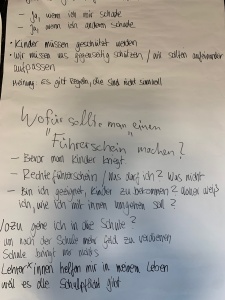 - Ja, wenn ich mir schade
- Ja, wenn ich anderen schade
• Kinder müssen geschützt werden
• Wir müssen uns gegenseitig schützen / wir sollten aufeinander
aufpassen
Meinung: Es gibt Regeln, die sind nicht sinnvoll
Wofür sollte man einen
"Führerschein machen?
- Bevor man Kinder kriegt
- Rechteführerschein / was darf ich? Was nicht
- Bin ich geeignet, Kinder zu bekommen? woher weiß
ich, wie ich mit ihnen umgehen soll?
Wozu gehe ich in die Schule?
um nach der Schule mehr Geld zu verdienen
Schule bringt mir nichts
Lehrer*innen helfen mir in meinem Leben
weil es die Schulpflicht gibt